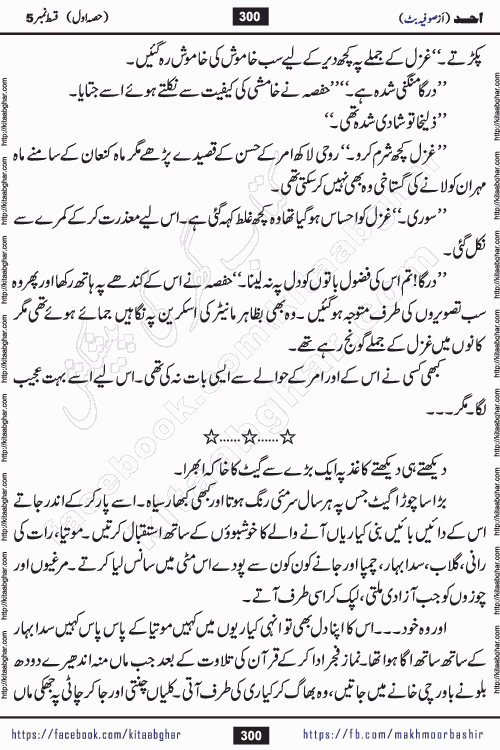 احد (از صوفیہ بٹ)
300
(حصہ اول) قسط نمبر 5
پکڑتے۔‘‘ غزل کے جملے پہ کچھ دیر کے لیے سب خاموش کی خاموش رہ گئیں۔
’’درگا منگنی شدہ ہے۔‘‘ ’’حفصہ نے خامشی کی کیفیت سے نکلتے ہوئے اسے جتایا۔
’’زلیخا تو شادی شدہ تھی۔‘‘
’’غزل کچھ شرم کرو۔‘‘ روحی لاکھ امر کے حسن کے قصیدے پڑھے مگر ماہ کنعان کے سامنے ماہ
مہران کو لانے کی گستاخی وہ بھی نہیں کر سکتی تھی۔
’’سوری۔‘‘ غزل کو احساس ہو گیا تھا وہ کچھ غلط کہہ گئی ہے۔ اس لیے معذرت کر کے کمرے سے
نکل گئی۔
’’درگا! تم اس کی فضول باتوں کو دل پہ نہ لینا۔‘‘ حفصہ نے اس کے کندھے پہ ہاتھ رکھا اور پھر وہ
سب تصویروں کی طرف متوجہ ہو گئیں۔ وہ بھی بظاہر مانیٹر کی اسکرین پہ نگاہیں جمائے ہوئے تھی مگر
کانوں میں غزل کے جملے گونج رہے تھے۔
کبھی کسی نے اس کے اور امر کے حوالے سے ایسی بات نہ کی تھی۔ اس لیے اسے بہت عجیب
لگا۔ مگر۔۔۔۔
☆......☆......☆
دیکھتے ہی دیکھتے کاغذ پہ ایک بڑے سے گیٹ کا خاکہ ابھرا۔
بڑا سا چوڑا گیٹ جس پہ ہر سال سرمئی رنگ ہوتا اور کبھی کبھار سیاہ۔ اسے پار کر کے اندر جاتے
اس کے دائیں بائیں بنی کیاریاں آنے والے کا خوشبوؤں کے ساتھ استقبال کرتیں۔ موتیا، رات کی
رانی، گلاب، سدا بہار، چمپا اور جانے کون کون سے پودے اس مٹی میں سانس لیا کرتے۔ مرغیوں اور
چوزوں کو جب آزادی ملتی، لپک کر اسی طرف آتے۔
اور وہ خود۔۔۔ اس کا اپنا دل بھی تو انہی کیاریوں میں کہیں موتیا کے پاس پاس کہیں سدا بہار
کے ساتھ ساتھ اگا ہوا تھا۔ نماز فجر ادا کر کے قرآن کی تلاوت کے بعد جب ماں منہ اندھیرے دودھ
بلونے باورچی خانے میں جاتیں، وہ بھاگ کر کیاری کی طرف آتی۔ کلیاں چنتی اور جا کر چاٹی پہ جھکی ماں
https://facebook.com/kitaabghar
300
https://fb.com/makhmoorbashir
http://kitaabghar.com